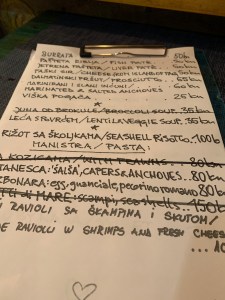 BURRATA 50kn
PAŠTETA RIBLJA / FISH PATE
JETRENA PAŠTETA / LIVER PATE
PAŠKI SIR / CHEESE FROM ISLAND OF PAG
DALMATINSKI PRŠUT / PROSCIUTTO 65kn
MARINIRANI I SLANI INĆUNI /
MARINATED & SALTED ANCHOVIES 60kn
VIŠKA POGAČA 25kn
JUHA OD BROKULE / BROCCOLI SOUP..36kn
LEĆA S POVRĆEM / LENTIL & VEGGIE SOUP. 35kn
RIŽOT SA ŠKOLJKAMA / SEASHELL RISOTTO..100kn
MANISTRA / PASTA:
A KOZICAMA / WITH PRAWNS..80kn
TANESCA: ŠALŠA, CAPERS & ANCHOVIES..80kn
RBONARA: egg, guanciale, pecorino romano 80kn
TTI di MARE: scampi, seashells..150kn
I RAVIOLI SA ŠKAMPIMA I SKUTOM /
DE RAVIOLI W SHRIMPS AND FRESH CHEESE
...10